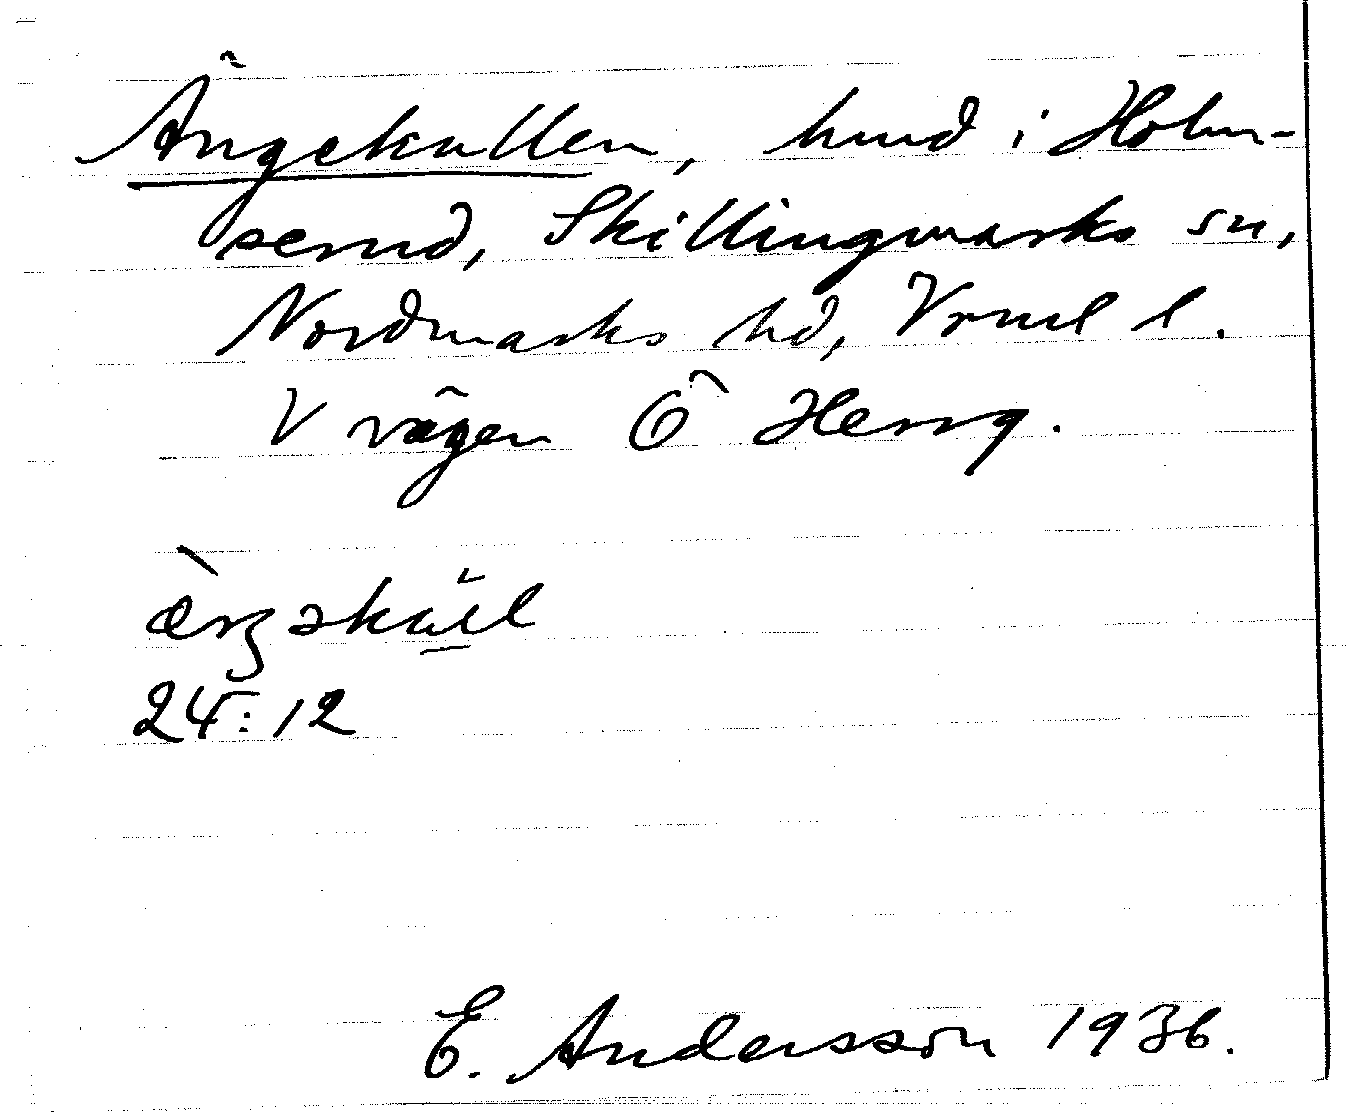 Ängekullen, hmd i Holm-
serud, Skillingmarks sn,
Nordmarks hd, Vrml l.
V vägen Ö Herrg.
24:12
E. Andersson 1936.